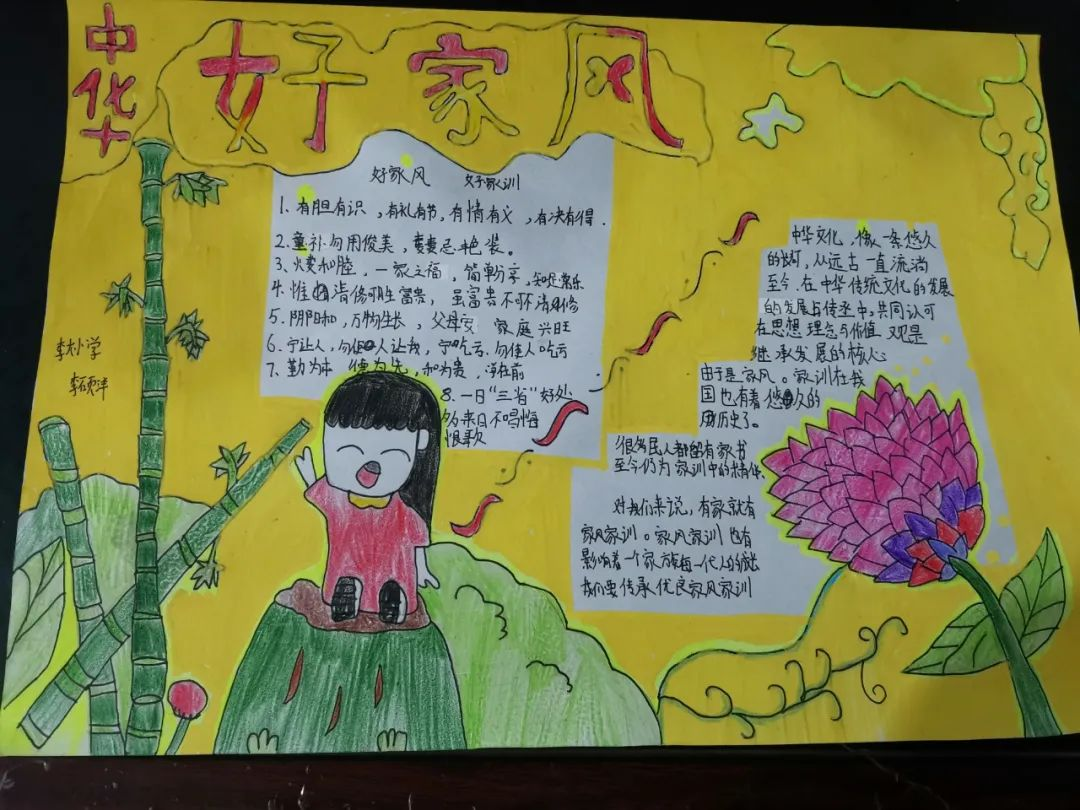 中华
好家风
好家风 好家训
1、有胆有识，有礼有节，有情有义，有决有得.
2、童补勾用俊美，莫忌艳装。
3、火暖和膛，一家之福，简朴亭，知足常乐
4、惟清修可胜富贵，虽富贵不可不清修
5、阴阳和，万物生长，父母安 家庭兴旺
6、宁让人，勿使人让我，宁吃亏，勿使人吃亏
7、勤为本，德为先，和为贵，学在前
8.一日“三省”好处
多来日不唱悔
恨歌
李木小学
中华文化，像一条悠久
的长河，从远古一直流淌
至今.在中华传统文化的发展
的发展与传承中，共同认可
在思想 理念与价值 观是
继承发展的核心
由于是家风。家训在我
国也有着悠久的
历史了。
很多居人都留有家书
至今仍为家训中的精华
对我们来说，有家就有
家风家训。家风家训也有
影响着一个家族每一代人的成
我们要传承优良家风家训